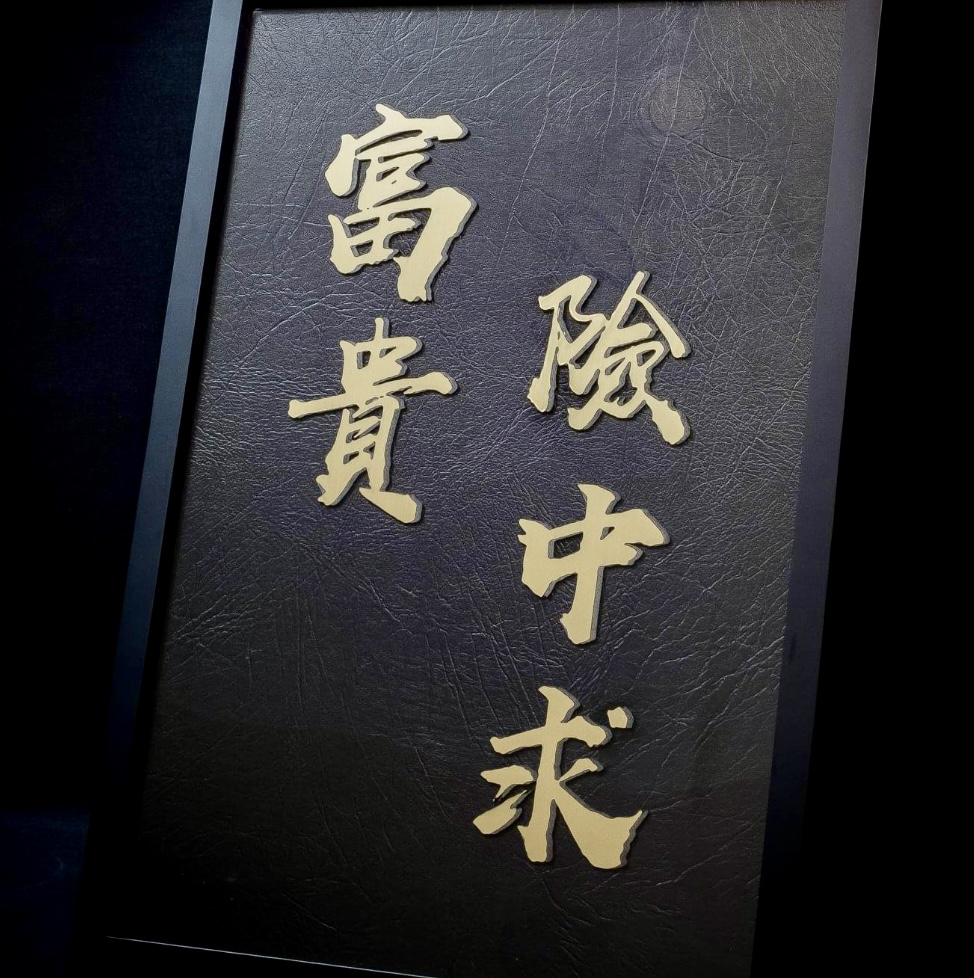 富貴
險中求